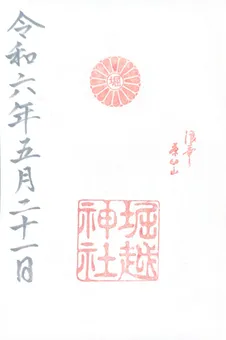 堀
堀越
神社
令和六年五月二十一日